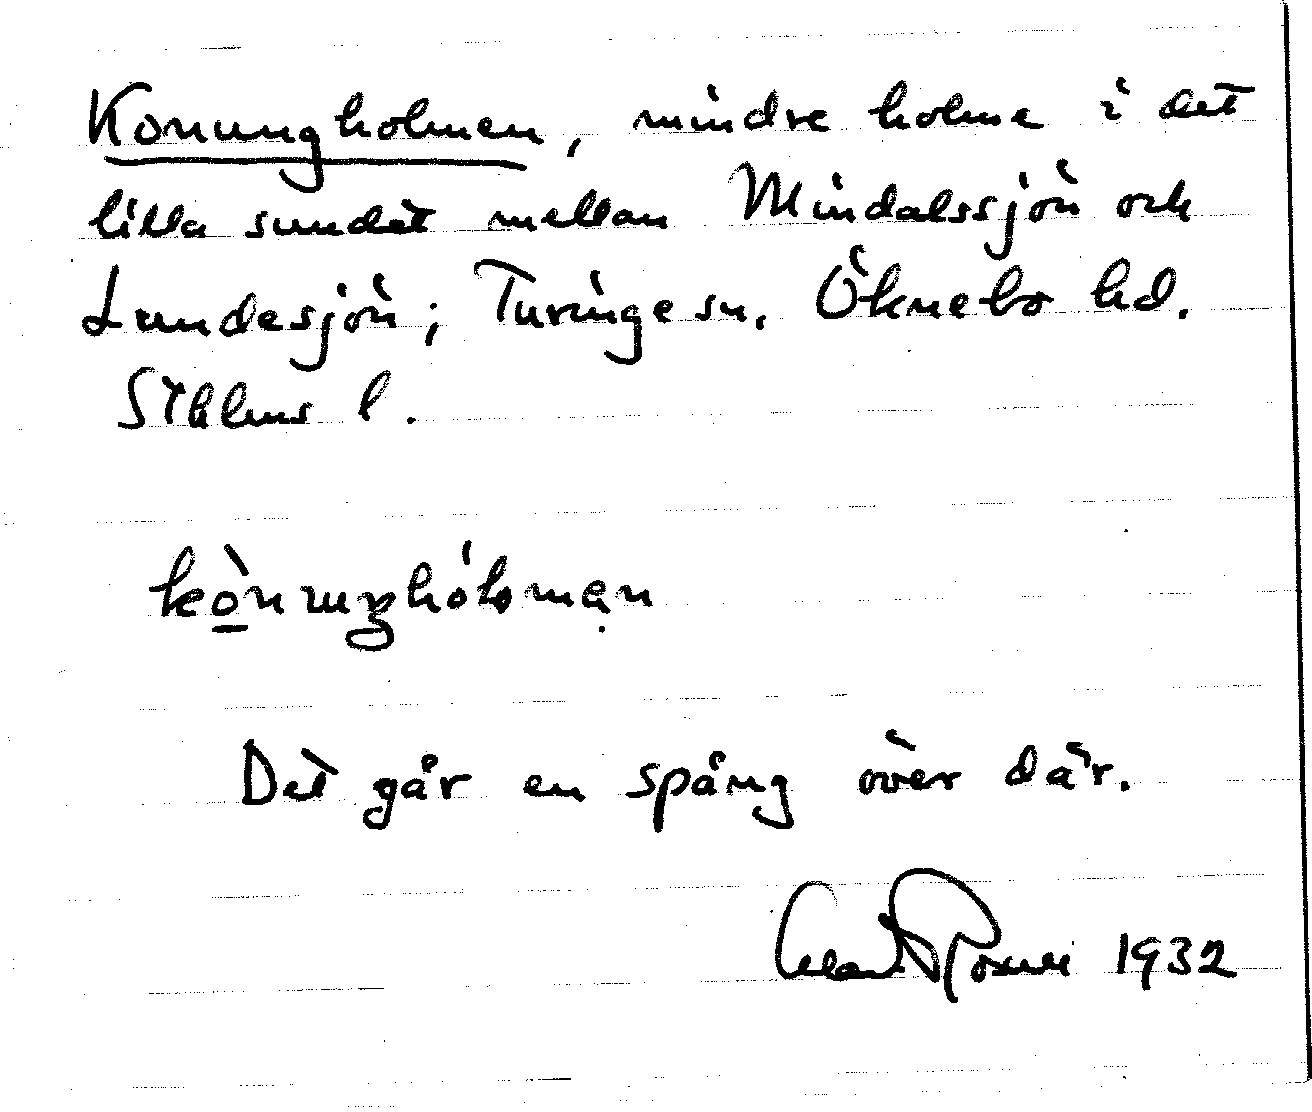 Konungholmen, mindre holme i det
lilla sundet mellan Mindalssjön och
Lundesjön; Turinge sn. Öknebo hd.
Sthlms l.
Det går en spång över där.
1932